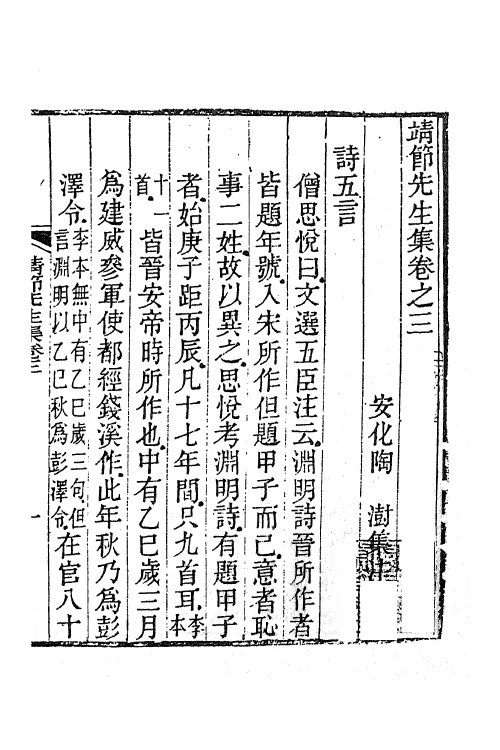 靖節先生集卷之三
安化陶　澍集注
詩五言
僧思悅曰文選五臣注云淵明詩晉所作者
皆題年號入宋所作但題甲子而已意者恥
事二姓故以異之思悅考淵明詩有題甲子
者始庚子距丙辰凡十七年間只九首耳李本
十一首皆晉安帝時所作也中有乙巳歲三月
為建威參軍使都經錢溪作此年秋乃為彭
澤令李本無中有乙巳歲三句但言淵明以乙巳秋為彭澤令在官八十
靖節先生集卷三
一